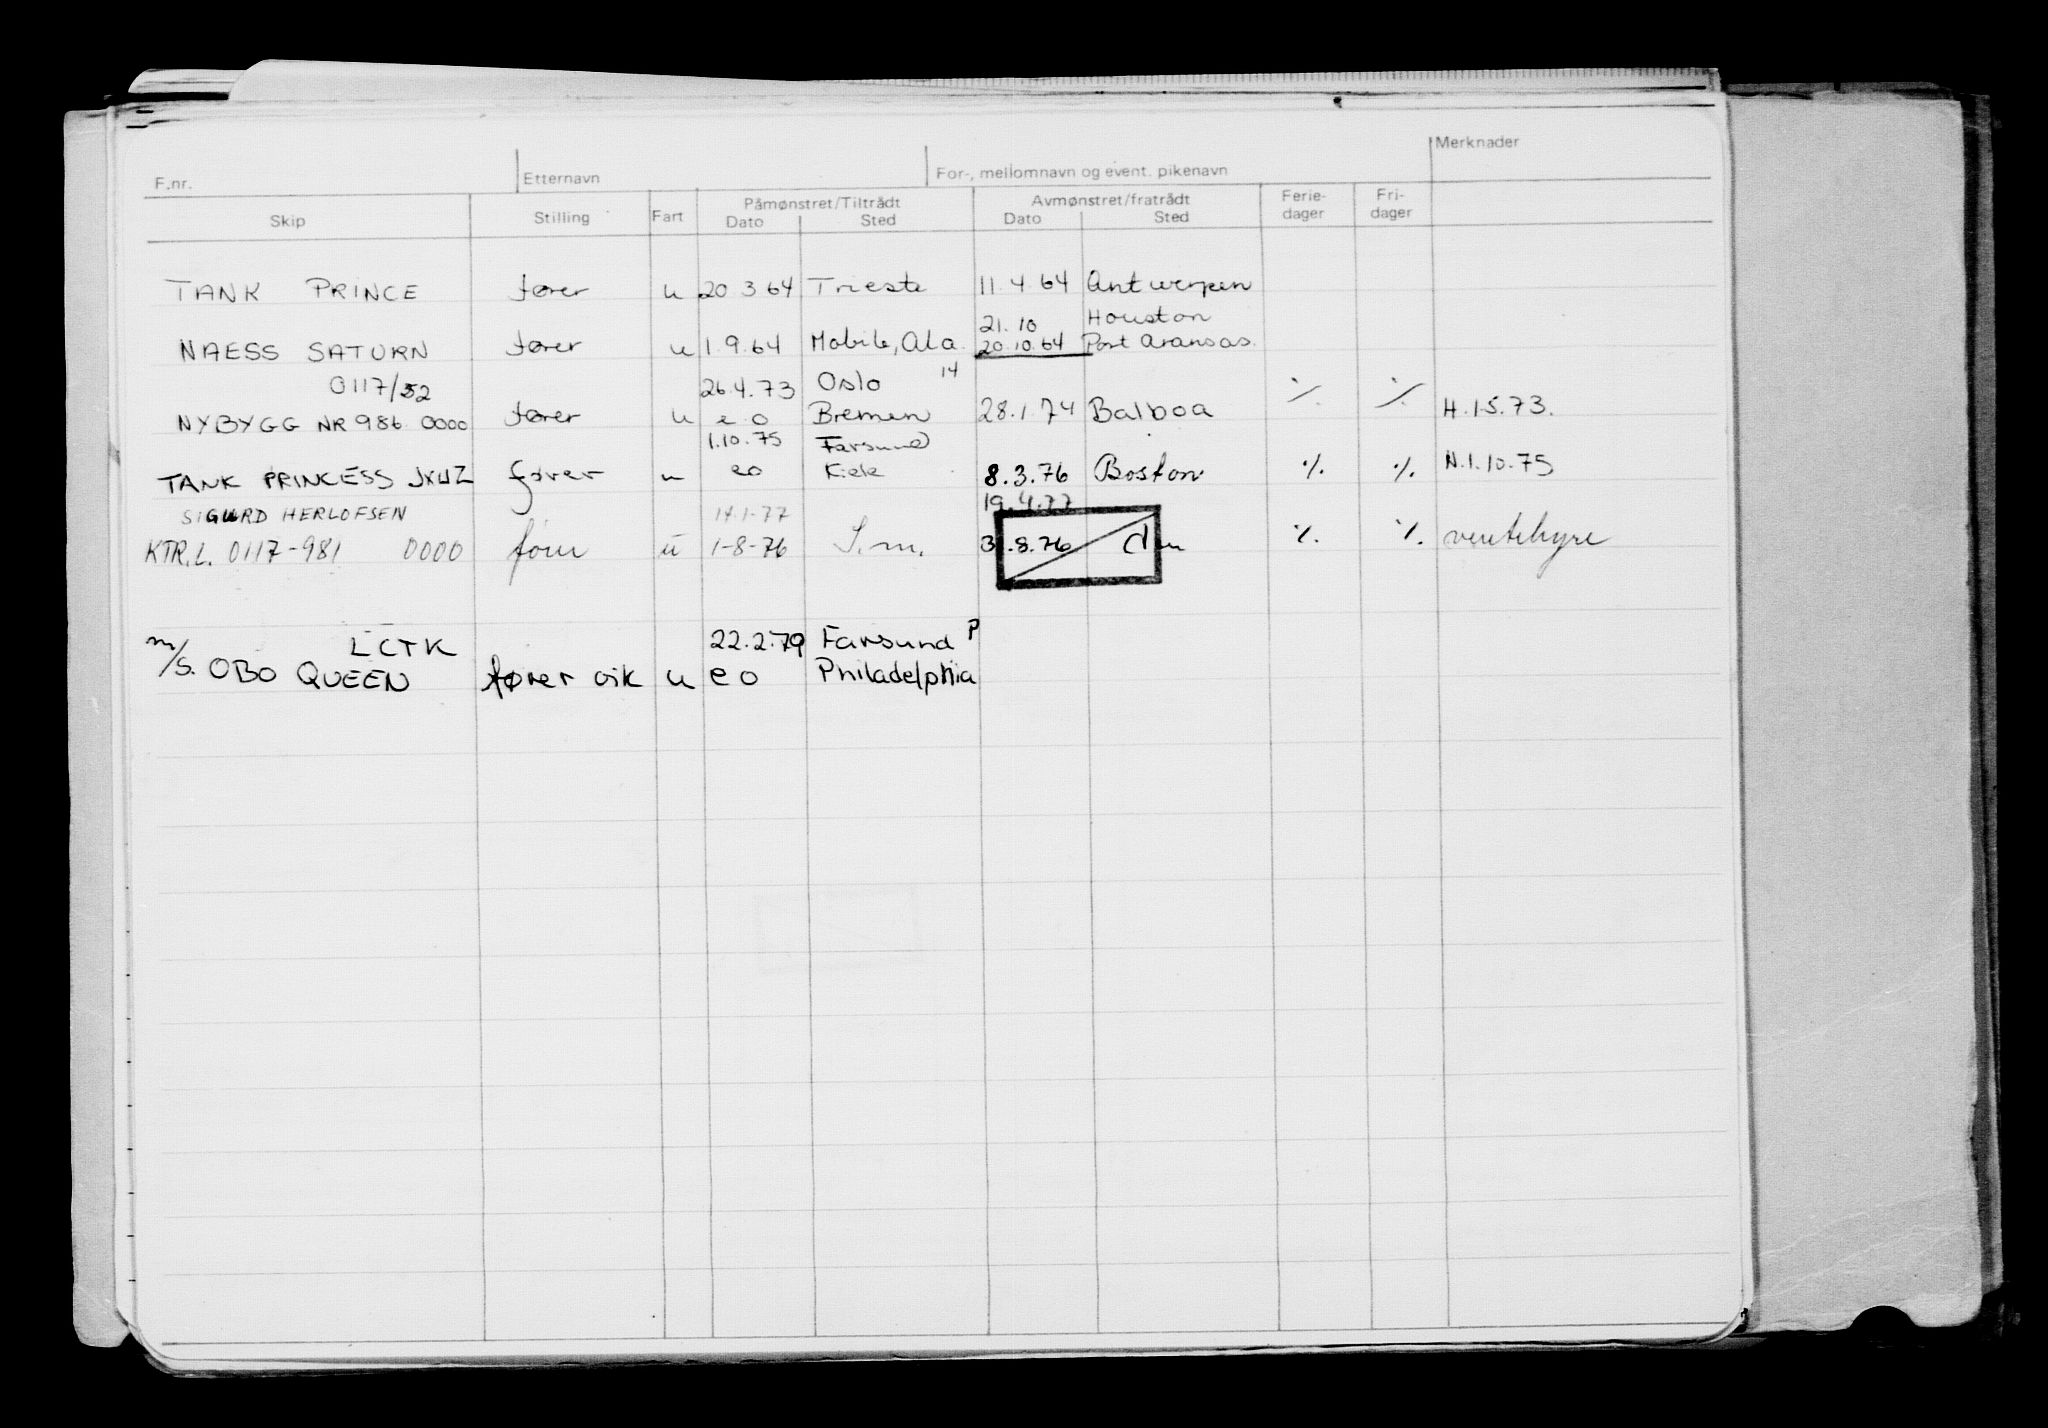 F.nr. Etternavn For-, mellomnavn og event. pikenavn Merknader
Skip Stilling Fart Påmønstret/Tiltrådt Avmønstret/fratrådt Ferie-dager Fri-dager
Dato Sted Dato Sted
TANK PRINCE fører u 20 3 64 Trieste 11 4 64 Antwerpen
21.10 Houston
NAESS SATURN fører u 1.9.64 Mobile, Ala. 20.10.64 Port Aransas.
0117/52 26.4.73 Oslo 14
NYBYGG NR 986 0000 fører u e o Bremen 28.1.74 Balboa ./. ./. H.1.5.73.
1.10.75 Farsund
TANK PRINCESS JXUZ fører u eo Kiel 8.3.76 Boston ./. ./. H.1.10.75
SIGURD HERLOFSEN 14.1-77 19.4.77
KTR.L. 0117-981 0000 fører u 1-8-76 S.m. 8.76 ./. ./. ventehyre
LCTK 22.2.79 Farsund P
m/s. OBO QUEEN fører vik u eo Philadelphia